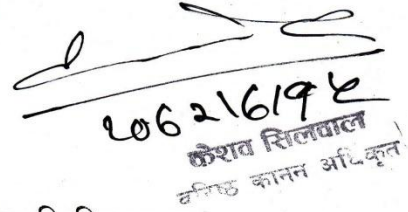 २०६२।६।१५
केशव सिलवाल
वरिष्ठ कानून अधिकृत